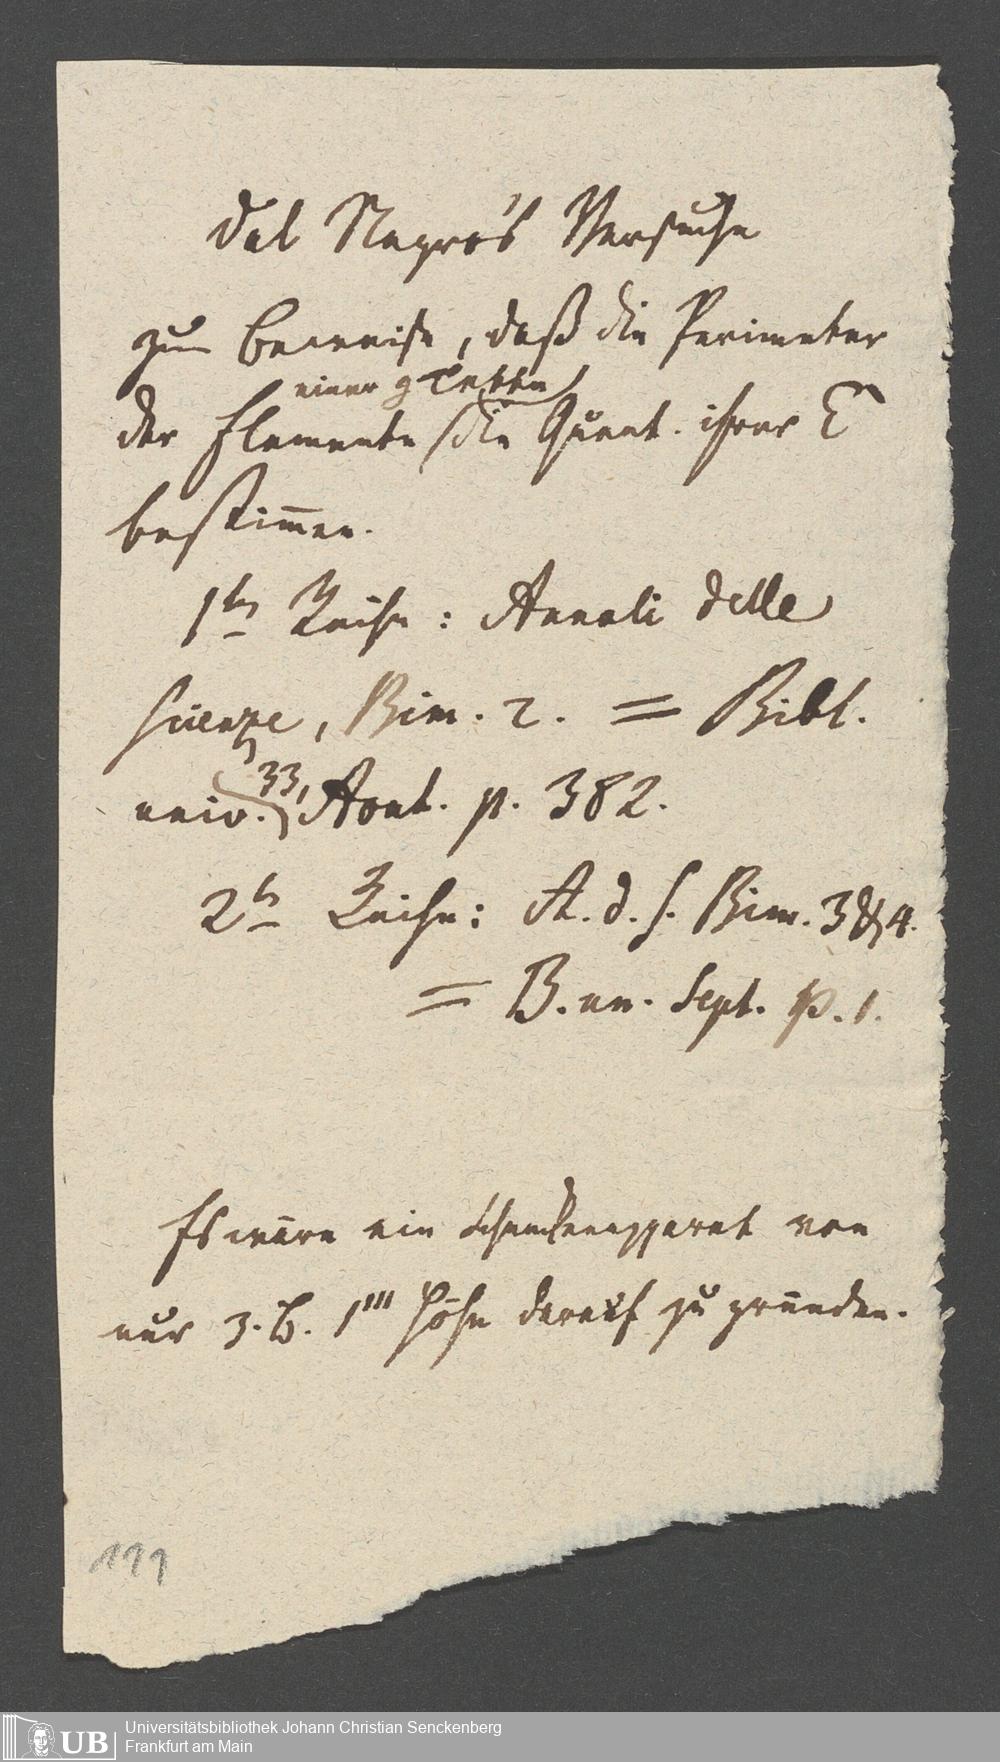 Dal Negro's Versuche
zum Beweise, daß die Perimeter
einer gr Kette
der Elemente die Quant. ihrer E
bestimmen.
1te Reihe: Annali delle
Scienze, Bim. 2. = Bibl.
univ. 33, Aout. p. 382.
2te Reihe: A. d. S. Bim. 3 & 4.
= B. un. Sept. p. 1.
Es wäre ein apparat von
nur z. B. 1''' Höhe darauf zu gründen.
111
UB
Universitätsbibliothek Johann Christian Senckenberg
Frankfurt am Main